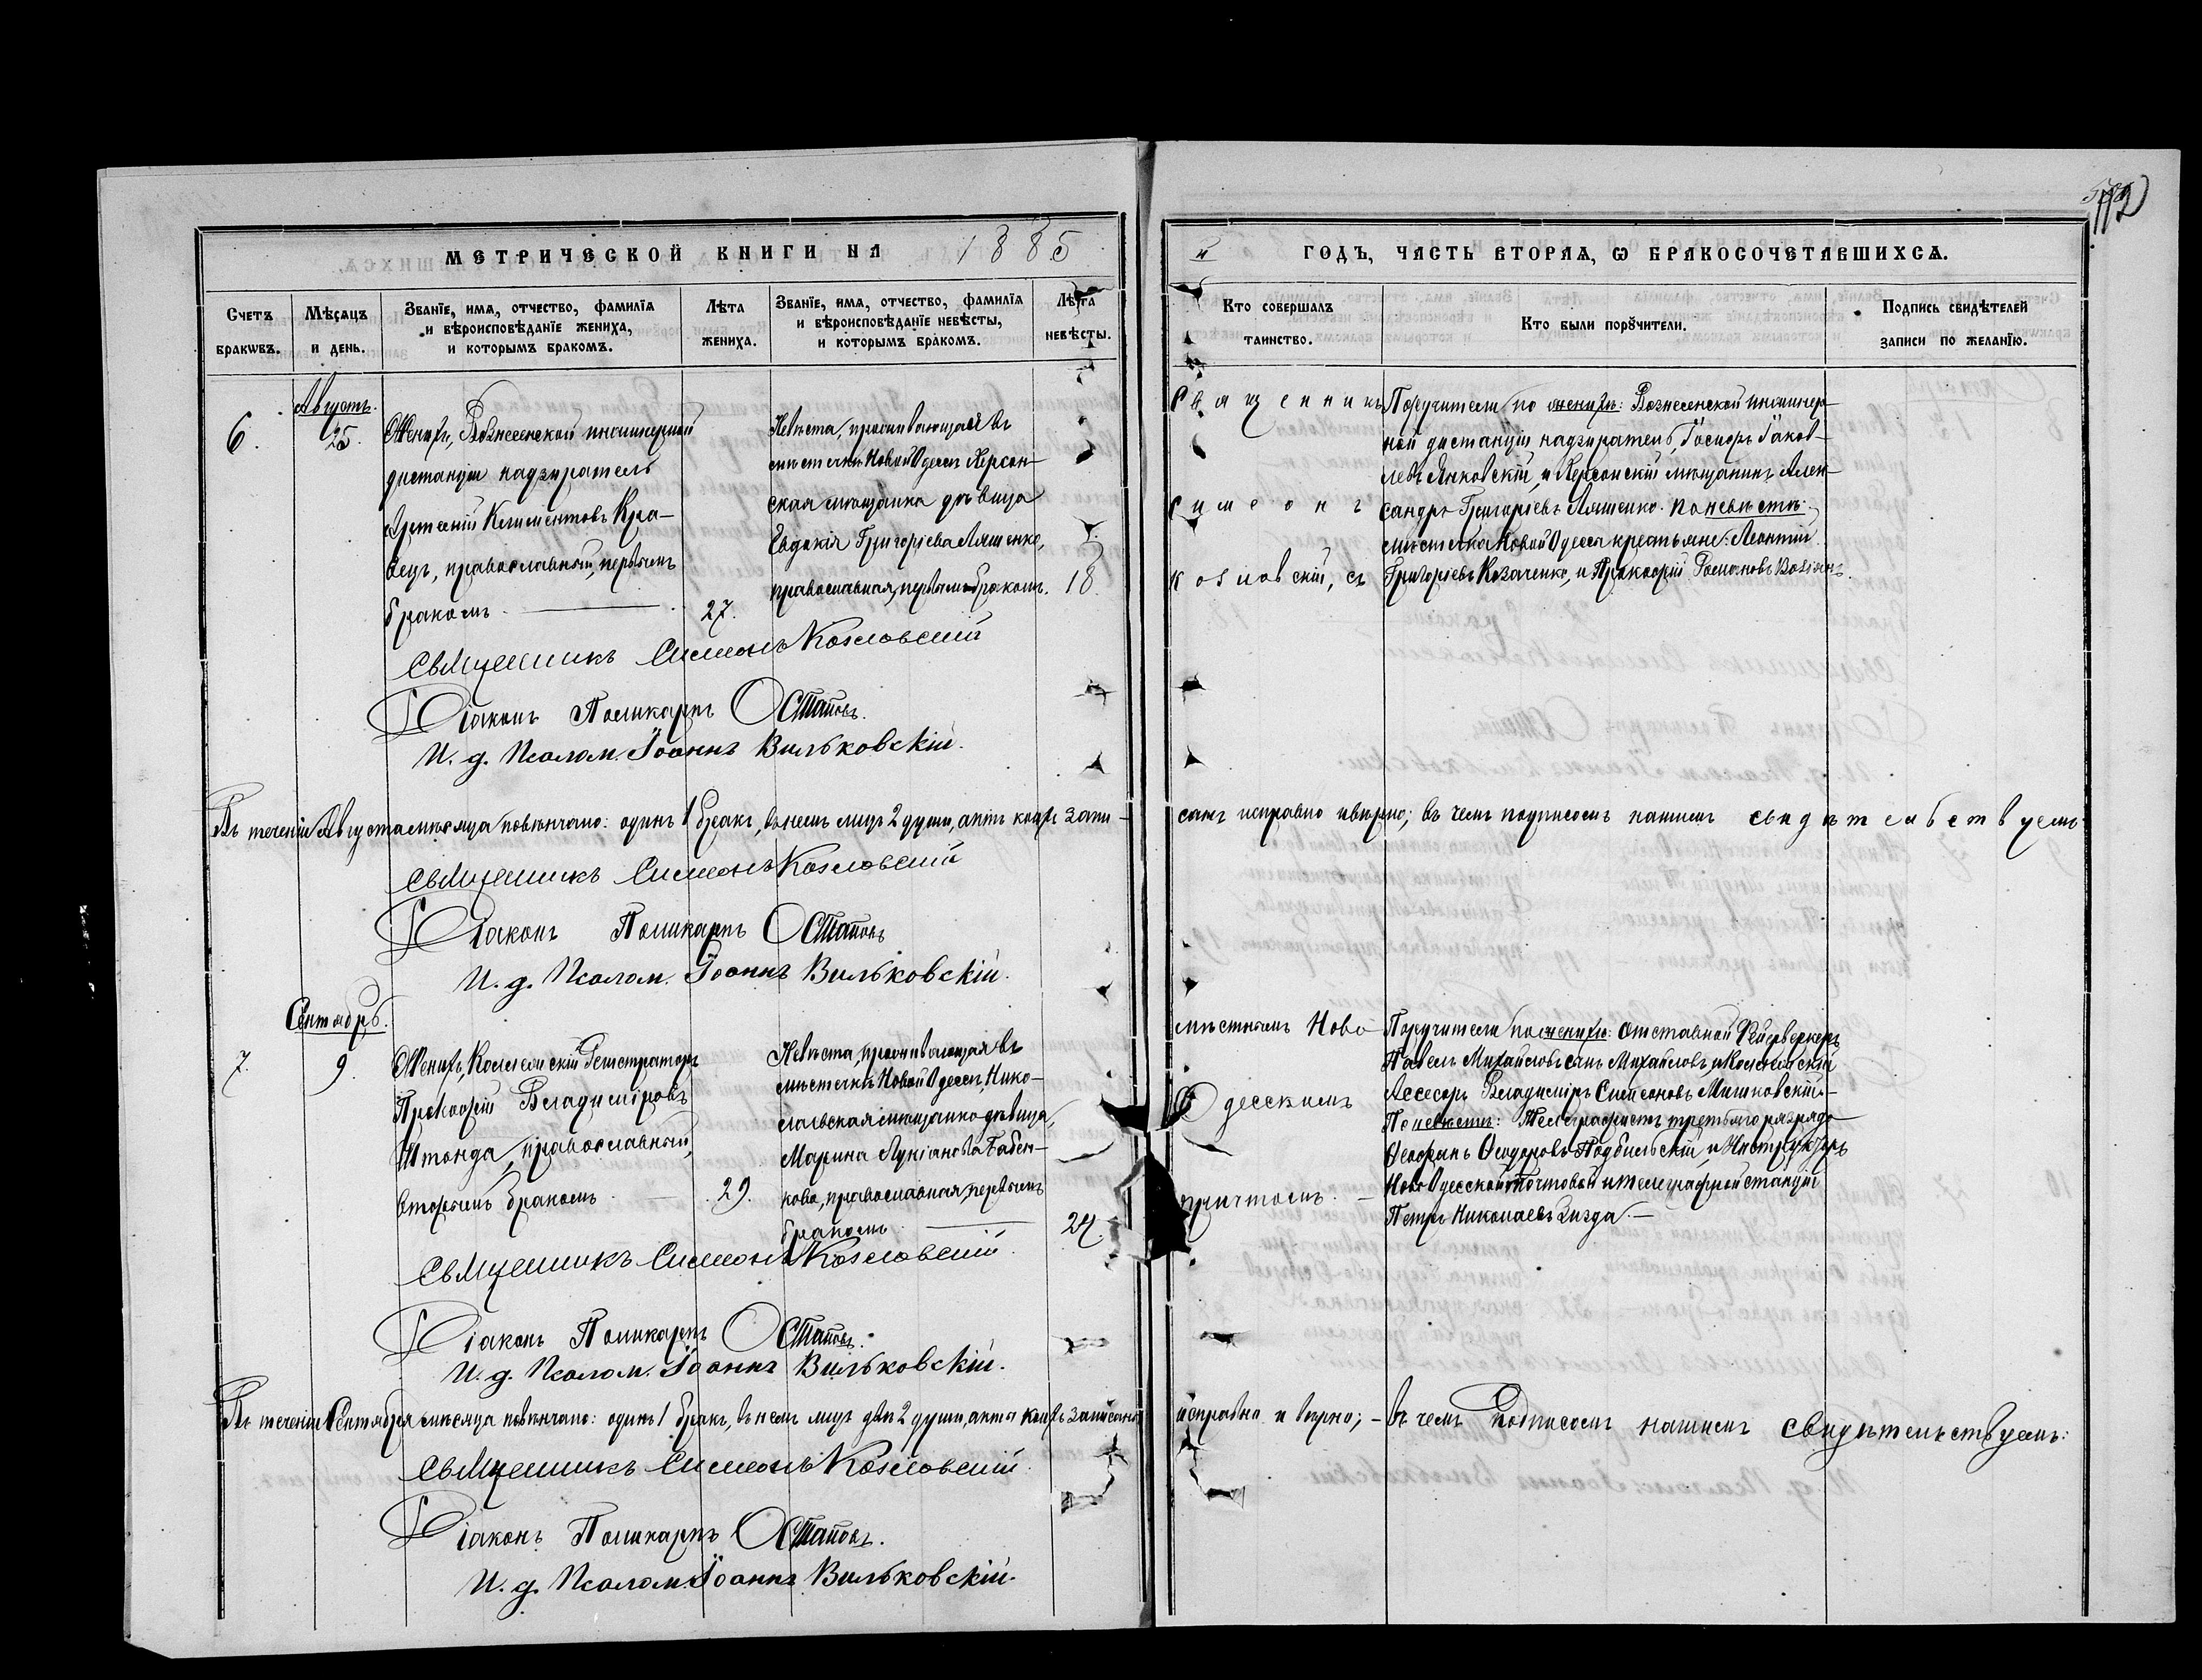 112
МЕТРИЧЕСКОЙ КНИГИ НА 1885
й ГОДЪ, ЧАСТЬ ВТОРАѦ, Ѡ БРАКОСОЧЕТАВШИХСѦ.
Счетъ бракѡвъ.
Мѣсѧцъ и день.
Званїе, имѧ, отчество, фамилїѧ
и вѣроисповѣданїе жениха,
и которымъ бракомъ.
Лѣта жениха.
Званїе, имѧ, отчество, фамилїѧ
и вѣроисповѣданїе невѣсты,
и которымъ бракомъ.
Лѣта невѣсты.
Кто совершалъ таинство.
Кто были порꙋчители.
Подпись свидѣтелей
записи по желанїю.
6.
Августъ.
25.
Женихъ, Вознесенской инженерной
дистанціи надзиратель
Артемій Климентовъ Кра-
вецъ, православный, первымъ
бракомъ
27.
Невѣста, проживающая въ
мѣстечкѣ Новой Одессѣ Херсон-
ская мѣщанка дѣвица
Евдокія Григоріева Ляшенко,
православная, первымъ бракомъ.
18.
Священникъ
Симеонъ
Козловскій, съ
Поручители по женихѣ: Вознесенской инженер-
ной дистанціи надзиратель, Іосифъ Іаков-
левъ Янковскій, и Херсонскій мѣщанинъ Алек-
сандръ Григоріевъ Ляшенко. По невѣстѣ:
мѣстечка Новой Одессы крестьяне: Леонтій
Григоріевъ Козаченко, и Прокофій Романовъ
Священникъ Симеонъ Козловскій
Діаконъ Поликарпъ Остаповъ.
И. д. Псалом. Іоаннъ Вильковскій.
Въ теченіи Августа мѣсяца повѣнчано: одинъ 1 бракъ, въ немъ лицъ 2 души, актъ коихъ запи-
санъ исправно и вѣрно; въ чемъ подписомъ нашимъ свидѣтельствуемъ
Священникъ Симеонъ Козловскій
Діаконъ Поликарпъ Остаповъ
И. д. Псалом. Іоаннъ Вильковскій.
Сентябрь.
7.
9.
Женихъ, Коллежскій Регистраторъ
Прокофій Владиміровъ
Штонда, православный,
вторымъ бракомъ
29.
Невѣста, проживающая въ
мѣстечкѣ Новой Одессѣ, Нико-
лаевская мѣщанка дѣвица,
Марина Лукіанова Бабен-
кова, православная, первымъ
бракомъ
24.
мѣстнымъ Ново-
Одесскимъ
причтомъ.
Поручители по женихѣ: Отставной Фейерверкеръ
Павелъ Михайловъ сынъ Михайловъ, и Коллежскій
Асесоръ Владиміръ Симеоновъ Мишковскій.
По невѣстѣ: Телеграфистъ третьяго разряда
Ѳеофанъ Ѳеодоровъ Подбильскій, и
Ново Одесской почтовой и телеграфной станціи
Петръ Николаевъ
Священникъ Симеонъ Козловскій.
Діаконъ Поликарпъ Остаповъ.
И. д. Псалом. Іоаннъ Вильковскій.
Въ теченіи Сентября мѣсяца повѣнчано: одинъ 1 бракъ, въ немъ лицъ двѣ 2 души, актъ коихъ записанъ
исправно и вѣрно; – въ чемъ подписомъ нашимъ свидѣтельствуемъ:
Священникъ Симеонъ Козловскій
Діаконъ Поликарпъ Остаповъ.
И. д. Псалом. Іоаннъ Вильковскій.